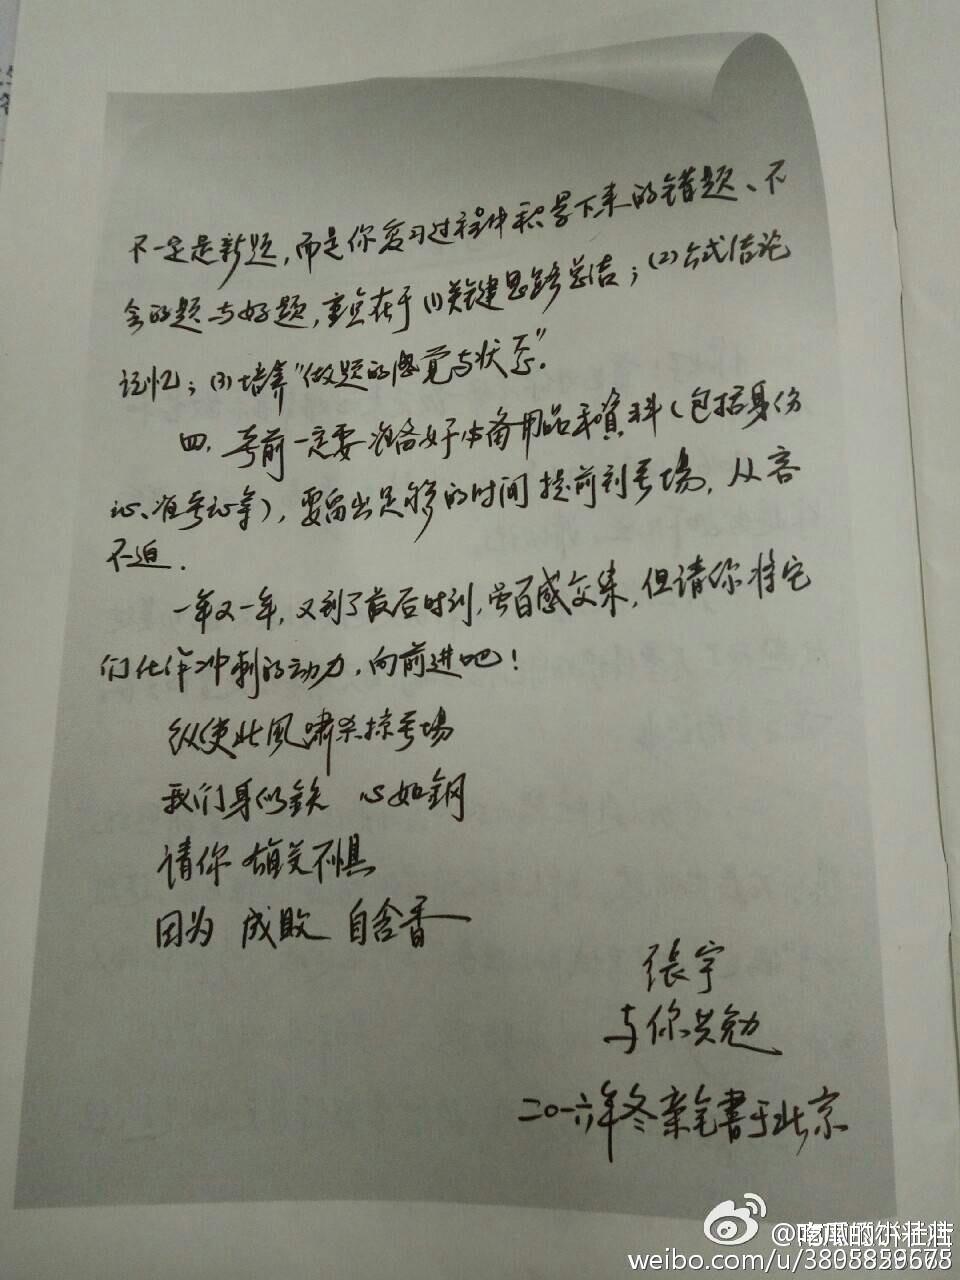 不一定是新题，而是你复习过程中积累下来的错题、不
会的题与好题，重点在于(1)关键思路总结；(2)公式结论
记忆；(3)培养“做题的感觉与状态”.
四、考前一定要准备好必备用品和資料（包括身份
证、准考证等），要留出足够的时间提前到考場，从容
不迫.
一年又一年，又到了最后时刻，虽百感交集，但请你将它
们化作冲刺的动力，向前进吧！
纵使北風啸杀掠考場
我们身似鉄 心如鋼
请你 雄关不惧
因为 成败 自含香
張宇
与你共勉
二〇一六年冬亲笔書于北京
weibo.com/u/3805829675